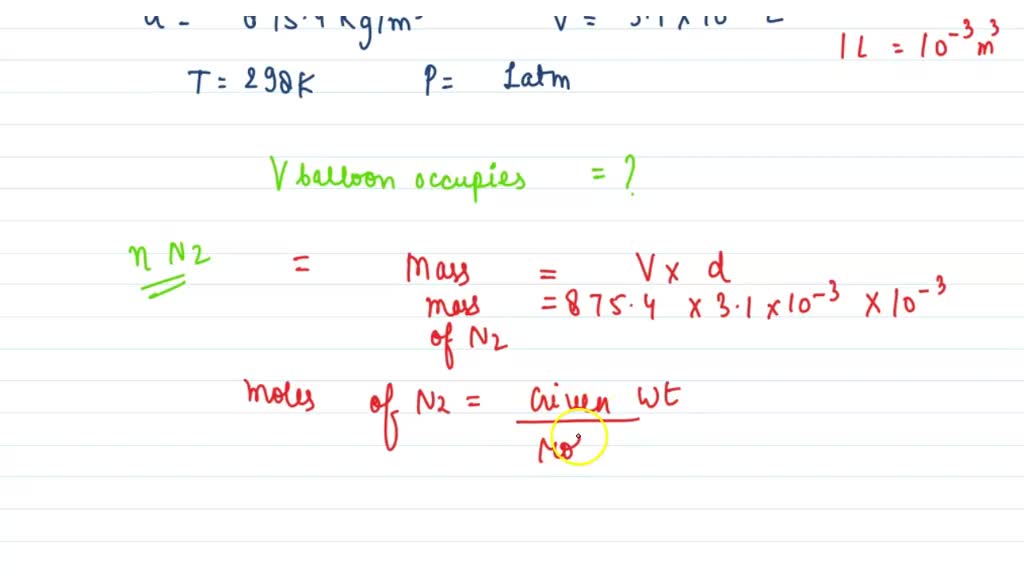 1 L = 10⁻³ m³
T = 298K P = 1atm
V balloon occupies = ?
n N2 = Mass = V x d
mass = 875.4 x 3.1 x 10⁻³ x 10⁻³
of N2
Moles of N2 = Given Wt
Mo